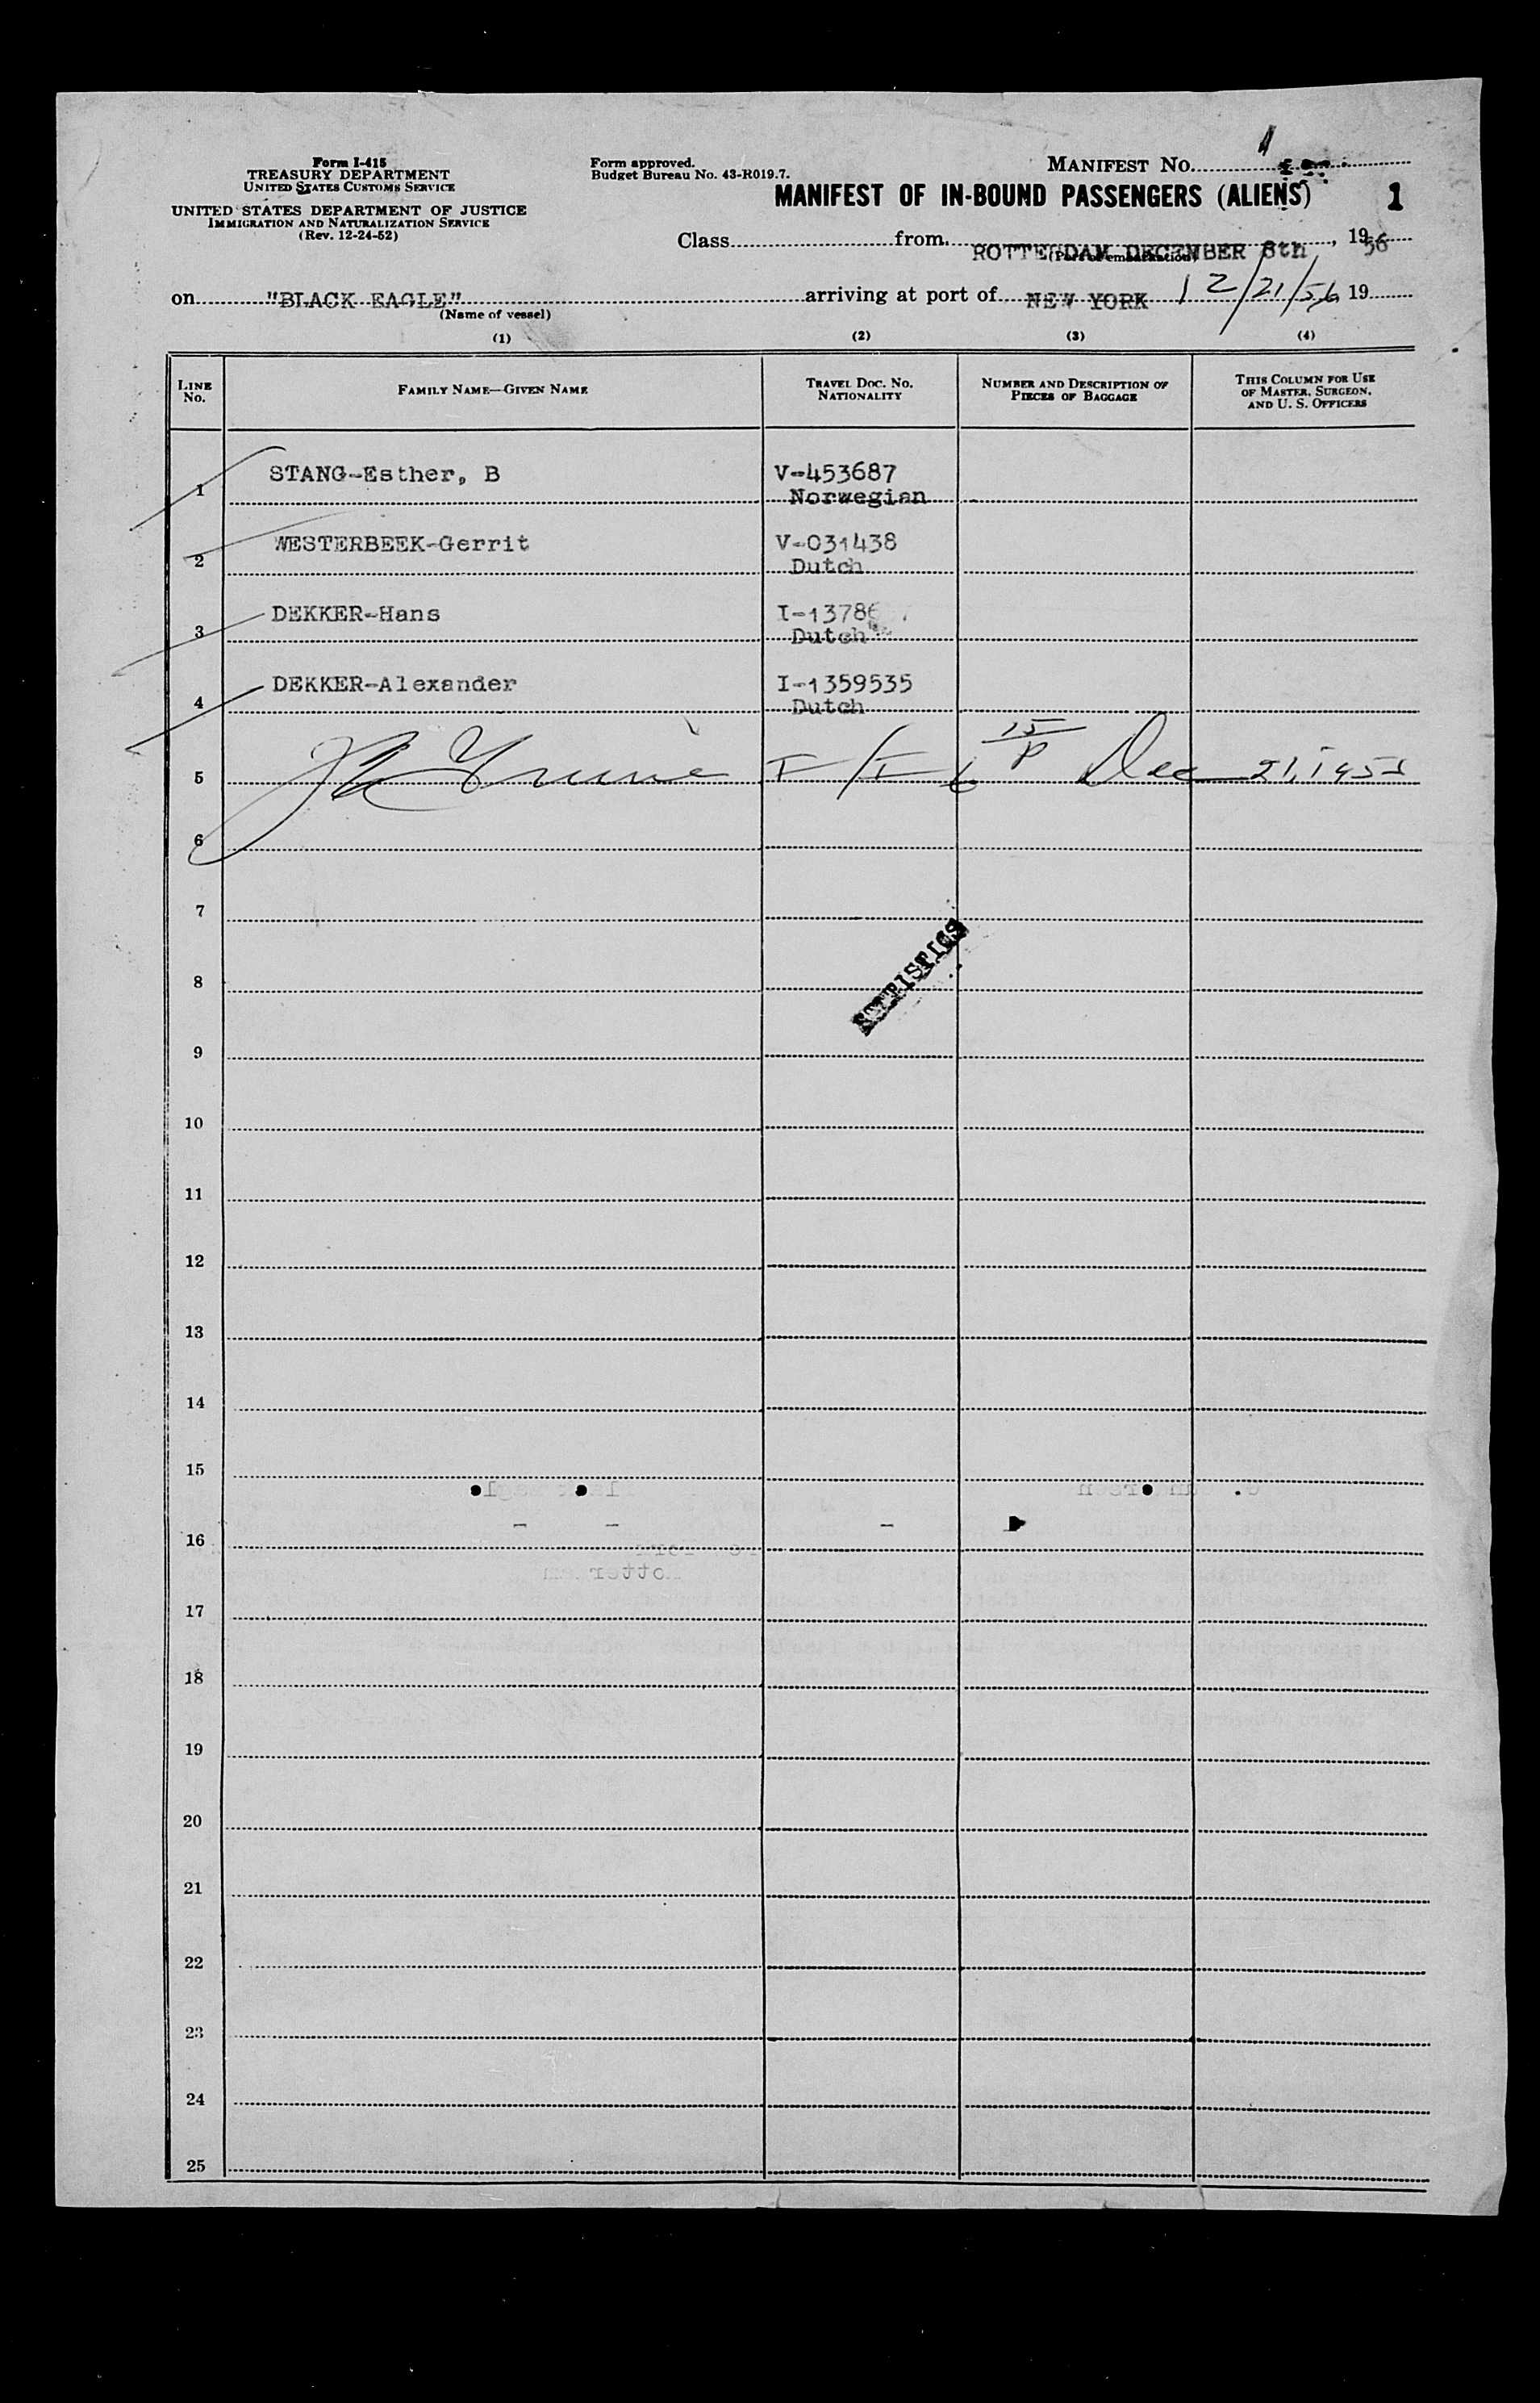 Form I-415
TREASURY DEPARTMENT
UNITED STATES CUSTOMS SERVICE
UNITED STATES DEPARTMENT OF JUSTICE
IMMIGRATION AND NATURALIZATION SERVICE
(Rev. 12-24-52)
Form approved.
Budget Bureau No. 43-R019.7.
MANIFEST No.
MANIFEST OF IN-BOUND PASSENGERS (ALIENS) 1
Class from ROTTERDAM DECEMBER 8th, 1956
(Port of embarkation)
on "BLACK EAGLE" arriving at port of NEW YORK 12/21/56 19
(Name of vessel)
(1) (2) (3) (4)
LINE No. FAMILY NAME—GIVEN NAME TRAVEL DOC. No. NATIONALITY NUMBER AND DESCRIPTION OF PIECES OF BAGGAGE THIS COLUMN FOR USE OF MASTER, SURGEON, AND U. S. OFFICERS
1 STANG-Esther, B V-453687
Norwegian
2 WESTERBEEK-Gerrit V-031438
Dutch
3 DEKKER-Hans I-13786
Dutch
4 DEKKER-Alexander I-1359535
Dutch
5 Dec 21, 195
6
7
STATISTICS
8
9
10
11
12
13
14
15
16
17
18
19
20
21
22
23
24
25